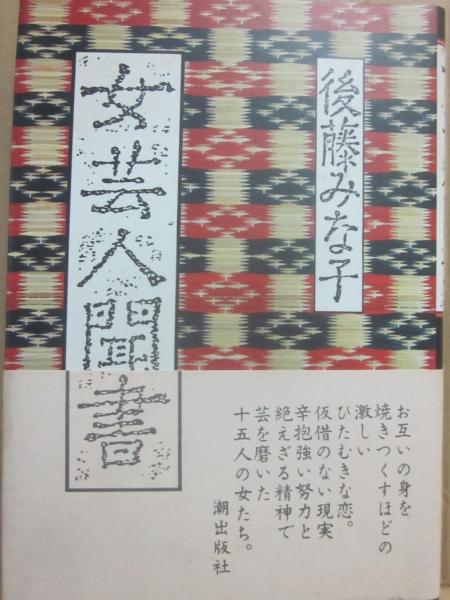 後藤みな子
女芸人聞書
お互いの身を
焼きつくすほどの
激しい
ひたむきな恋。
仮借のない現実
辛抱強い努力と
絶えざる精神で
芸を磨いた
十五人の女たち。
潮出版社